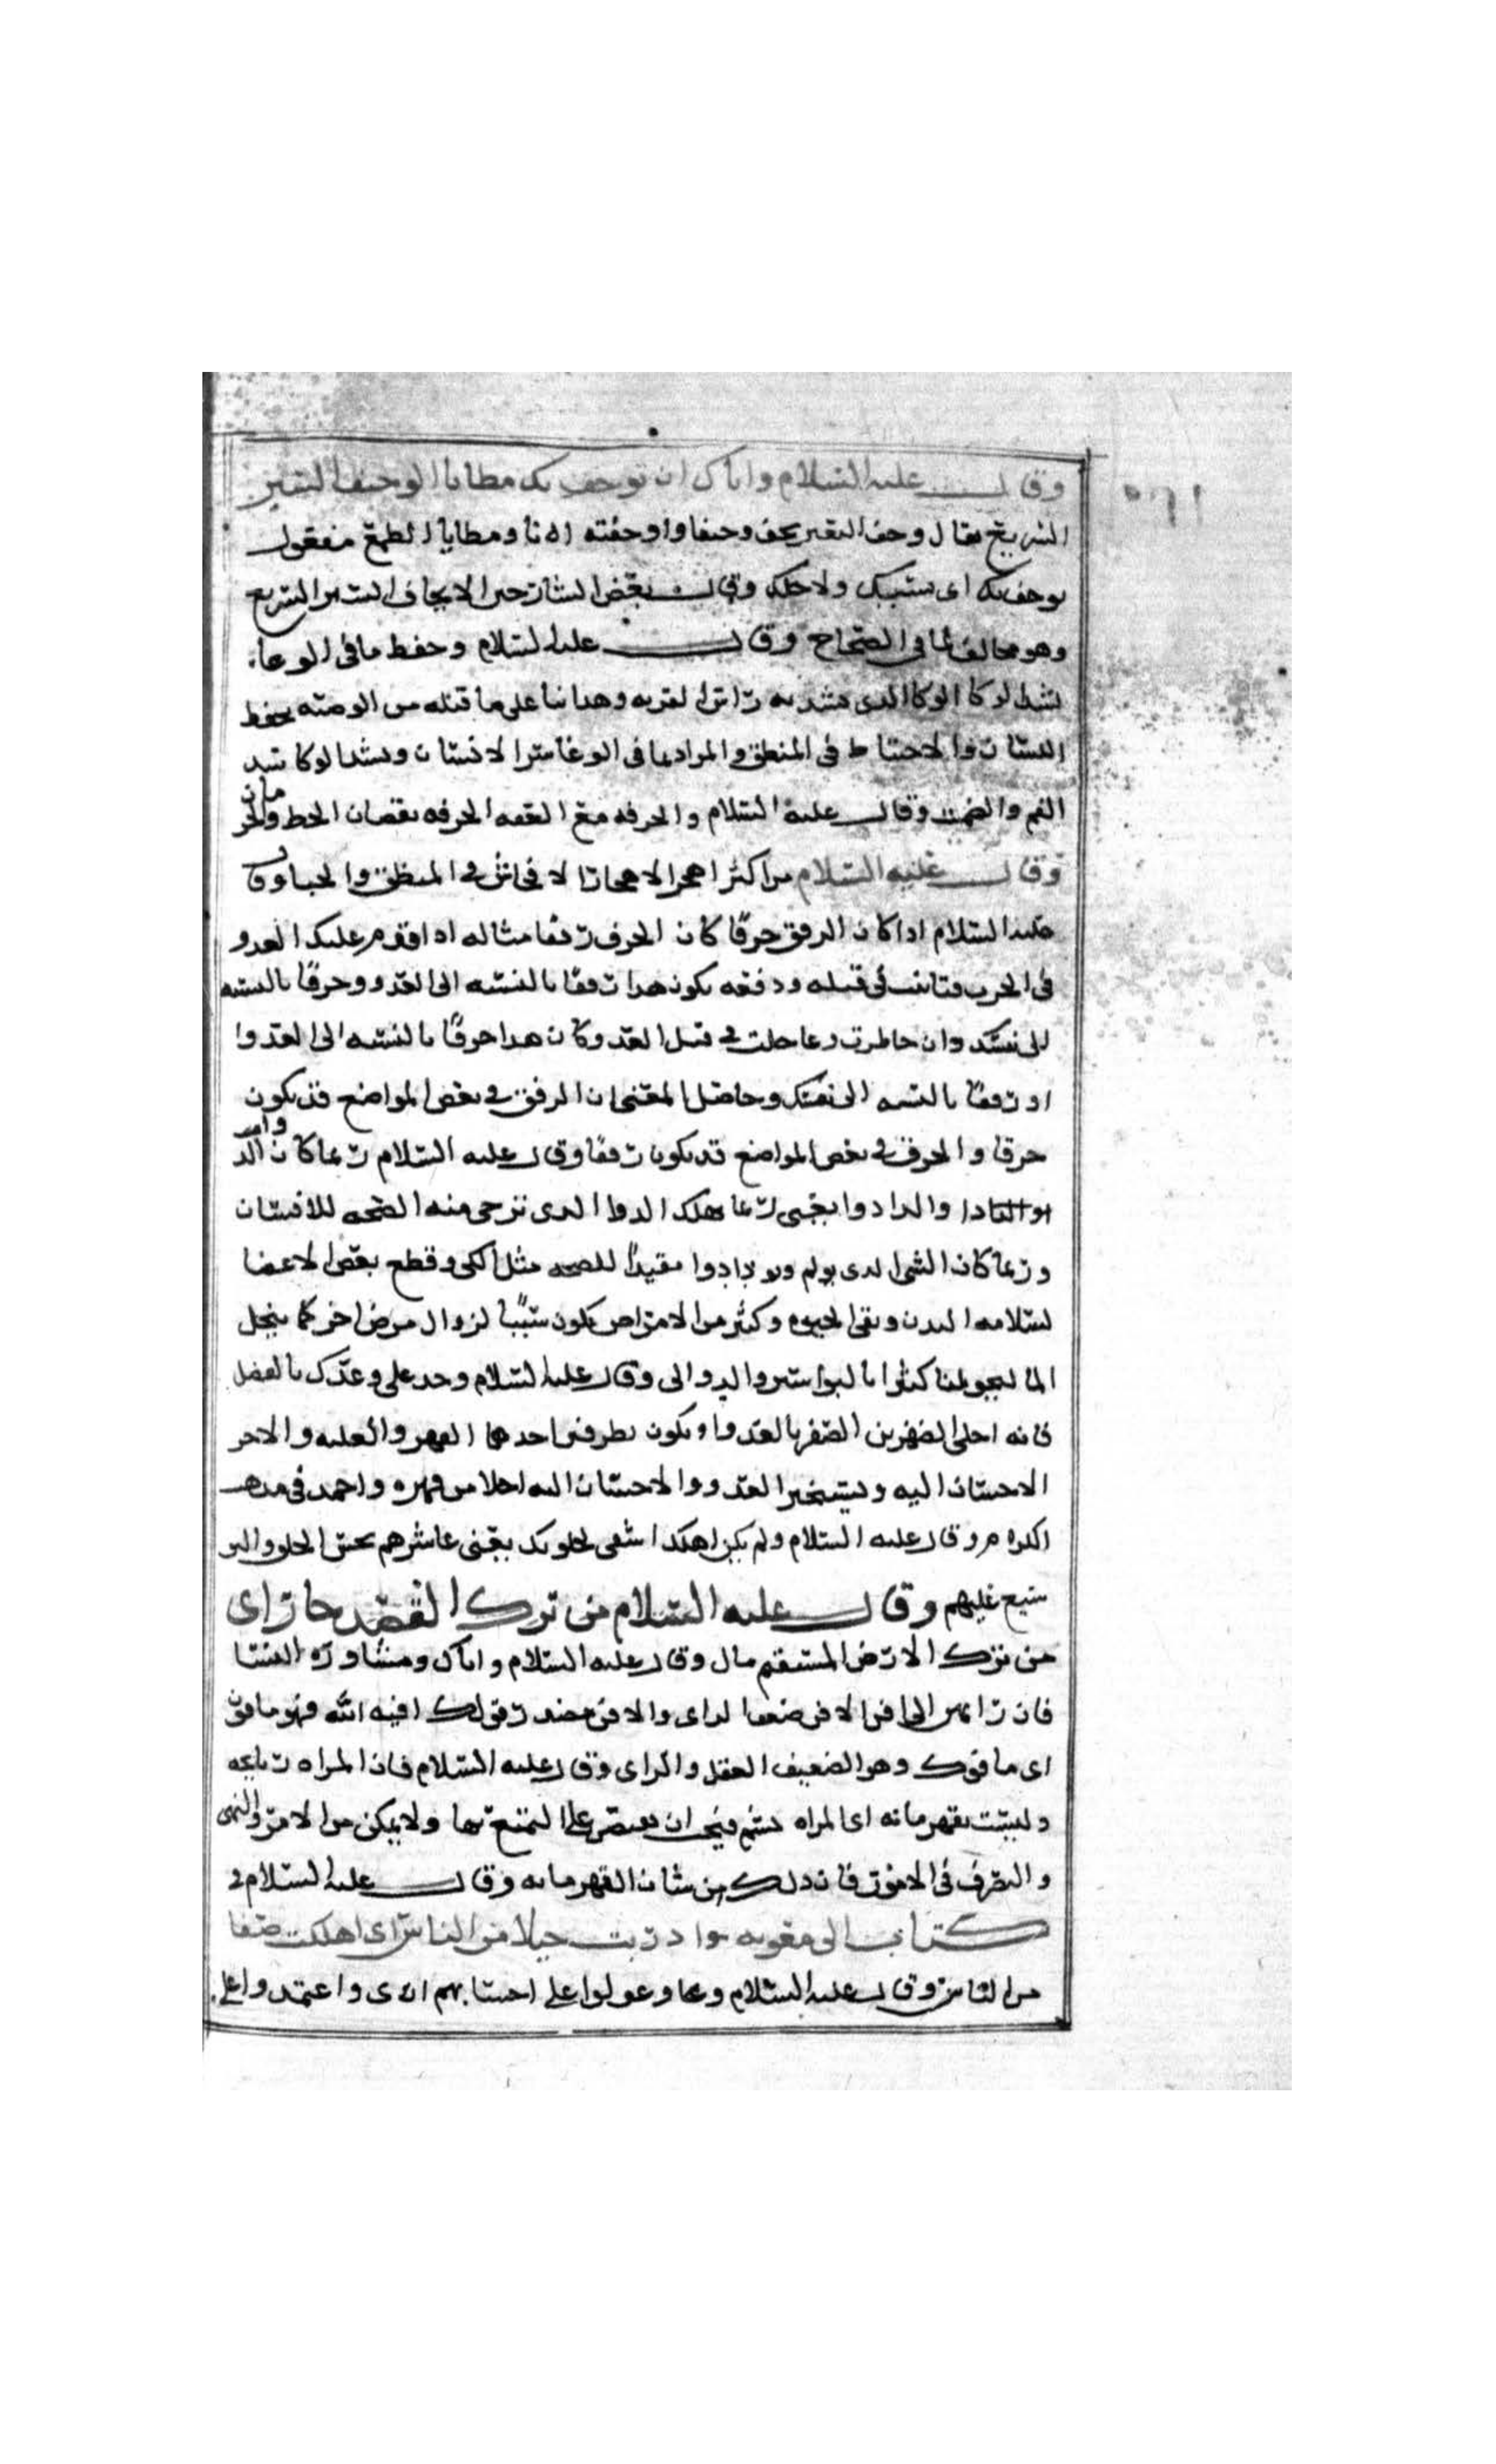 وقال عليه السلام واياك ان توجف بك مطايا الوجيف السير
السريع يقال وجف البعير يجف وجيفا واوجفته انا ومطايا الطمع مفعول
توجف بك اى بسببك ولاجلك وقال بعض الشارحين الايجاف السير السريع
وهو مخالف لما فى الصحاح وقال عليه السلام وحفظ ما فى الوعاء
بشد الوكا الوكا الدى يشد به راس القربه وهدا بنا على ما قبله من الوصيه بحفظ
اللسان والاحتياط فى المنطق والمراد بما فى الوعا سر الانسان وبشد الوكا شد
الفم والصمت وقال عليه السلام والحرفه مع العفه الحرفه نقصان الحظ والحرمان
وقال عليه السلام من اكثر اهجر الاهجار الافحاش فى المنطق والخنا وقال
عليه السلام ادا كان الرفق خرقًا كان الخرق رفقا مثاله ادا اقدم عليك العدو
فى الحرب فتانيت فى قتله ودفعه يكون هدا رفقا بالنسبه الى العدو وخرقًا بالنسبه
الى نفسك وان خاطرت وعاجلت فى قتل العدو كان هدا خرقًا بالنسبه الى العدو ا
او رفقا بالنسبه الى نفسك وحاصل المعنى ان الرفق فى بعض المواضع قد يكون
خرقا والخرق فى بعض المواضع قد يكون رفقا وقال عليه السلام ربما كان الدوا
دا والدا دوا يعنى ربما هلك الدوا الدى ترجى منه الصحه للانسان
وربما كان الشى الدى يولم دوا مفيدًا للصحه مثل الكى وقطع بعض الاعضا
لسلامه البدن وبقى الحيوه وكثير من الامراض يكون سببًا لزوال مرض اخر كما ينحل
المالنجوليا كثيرا بالبواسير والدوالى وقال عليه السلام وخد على عدوك بالفضل
فانه احلى الظفرين الظفر بالعدو يكون بطرفين احدهما القهر والغلبه والاخر
الاحسان اليه وتسخير العدو والاحسان اليه احلا من قهره واحمد فى مدهب
الكرام وقال عليه السلام ولم يكن اهلك اشقى الخلق بك يعنى عاشرهم بحسن الخلق والبر
سبع عليهم وقال عليه السلام من ترك القصد جار اى
من ترك الارض المستقيم مال وقال عليه السلام واياك ومشاورة النسا
فان رايهن الى افن الافن ضعف الراى والافن مصدر قولك افنه الله فهو مافون
اى مافوك وهو الضعيف العقل والراى وقال عليه السلام فان المراه ريحانه
وليست بقهرمانه اى المراه تشم فيجب ان يقتصر على التمتع بها ولا يمكن من الامر والنهى
والتصرف فى الامور فان دلك من شان القهرمانه وقال عليه السلام فى
كتاب الى معويه وارديت جيلا من الناس اى اهلكت صنفا
من الناس وقال عليه السلام وعولوا على احسابهم اى واعتمدوا على